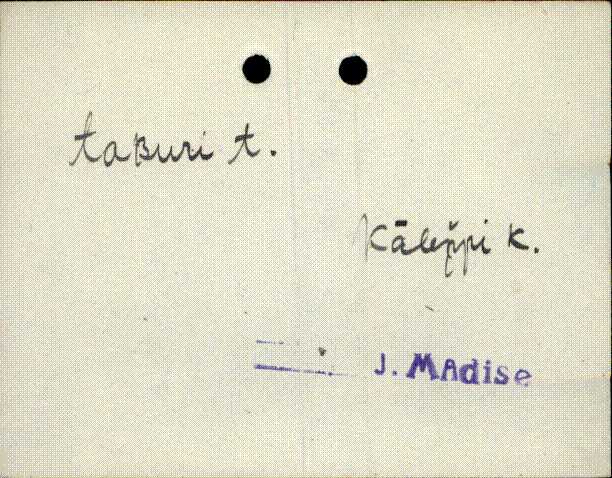 taBuri t.
Kāleppi k.
J. MAdise